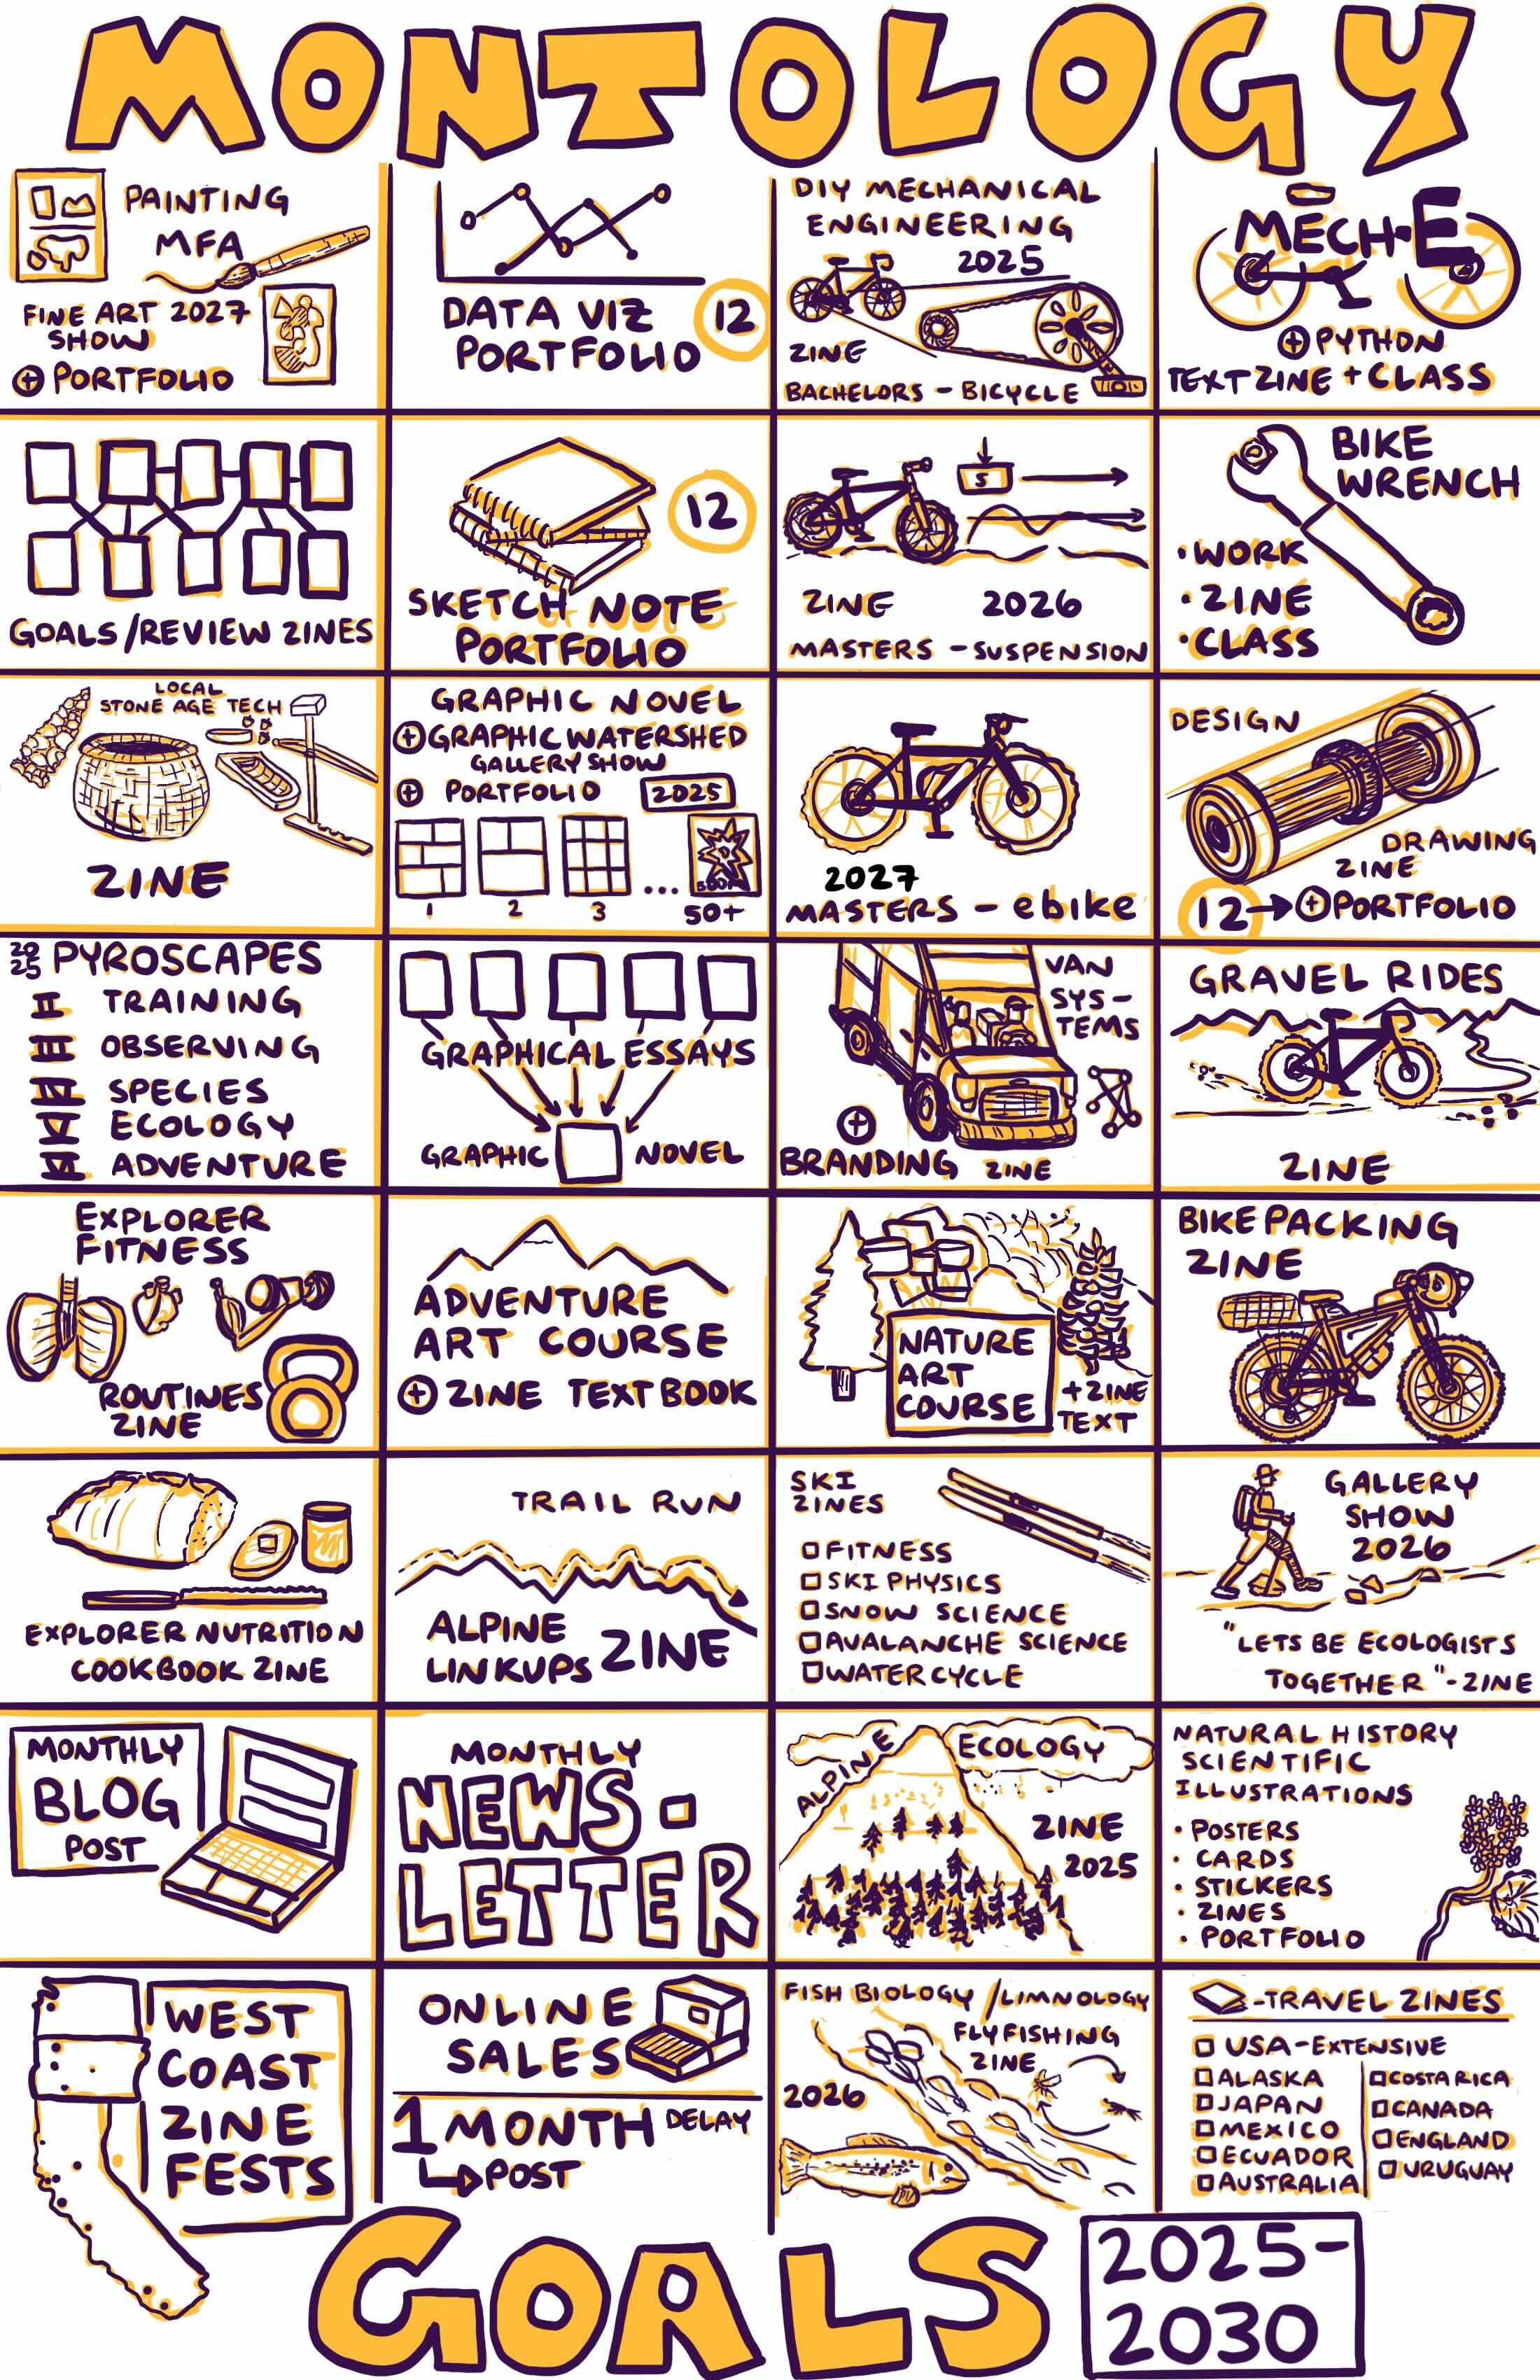 MONTOLOGY
PAINTING
MFA
FINE ART 2027
SHOW
⊕ PORTFOLIO
DATA VIZ
PORTFOLIO
12
DIY MECHANICAL
ENGINEERING
2025
ZINE
BACHELORS - BICYCLE
MECH-E
⊕ PYTHON
TEXT ZINE + CLASS
GOALS/REVIEW ZINES
12
SKETCH NOTE
PORTFOLIO
S
ZINE 2026
MASTERS - SUSPENSION
BIKE
WRENCH
• WORK
• ZINE
• CLASS
LOCAL
STONE AGE TECH
ZINE
GRAPHIC NOVEL
⊕ GRAPHIC WATERSHED
GALLERY SHOW
⊕ PORTFOLIO 2025
BOOM
1 2 3 ... 50+
2027
MASTERS - ebike
DESIGN
DRAWING
ZINE
12 → ⊕ PORTFOLIO
2025 PYROSCAPES
II TRAINING
III OBSERVING
IV SPECIES
V ECOLOGY
VI ADVENTURE
GRAPHICAL ESSAYS
GRAPHIC NOVEL
VAN
SYS-
TEMS
⊕
BRANDING ZINE
GRAVEL RIDES
ZINE
EXPLORER
FITNESS
ROUTINES
ZINE
ADVENTURE
ART COURSE
⊕ ZINE TEXTBOOK
NATURE
ART
COURSE
+ ZINE
TEXT
BIKEPACKING
ZINE
EXPLORER NUTRITION
COOKBOOK ZINE
TRAIL RUN
ALPINE
LINKUPS ZINE
SKI
ZINES
□ FITNESS
□ SKI PHYSICS
□ SNOW SCIENCE
□ AVALANCHE SCIENCE
□ WATER CYCLE
GALLERY
SHOW
2026
"LETS BE ECOLOGISTS
TOGETHER" - ZINE
MONTHLY
BLOG
POST
MONTHLY
NEWS-
LETTER
ALPINE ECOLOGY
ZINE
2025
NATURAL HISTORY
SCIENTIFIC
ILLUSTRATIONS
• POSTERS
• CARDS
• STICKERS
• ZINES
• PORTFOLIO
WEST
COAST
ZINE
FESTS
ONLINE
SALES
1 MONTH DELAY
↳ POST
FISH BIOLOGY/LIMNOLOGY
FLYFISHING
ZINE
2026
-TRAVEL ZINES
□ USA-EXTENSIVE
□ ALASKA
□ JAPAN
□ MEXICO
□ ECUADOR
□ AUSTRALIA
□ COSTA RICA
□ CANADA
□ ENGLAND
□ URUGUAY
GOALS
2025-
2030